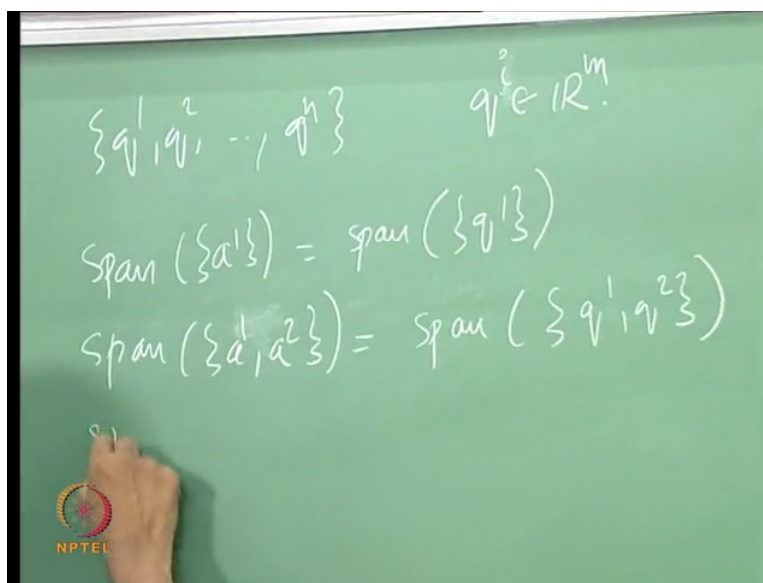 {q¹, q², .., qⁿ} qⁱ ∈ ℝᵐ.
Span ({a¹}) = span ({q¹})
Span ({a¹, a²}) = Span ({q¹, q²})
NPTEL